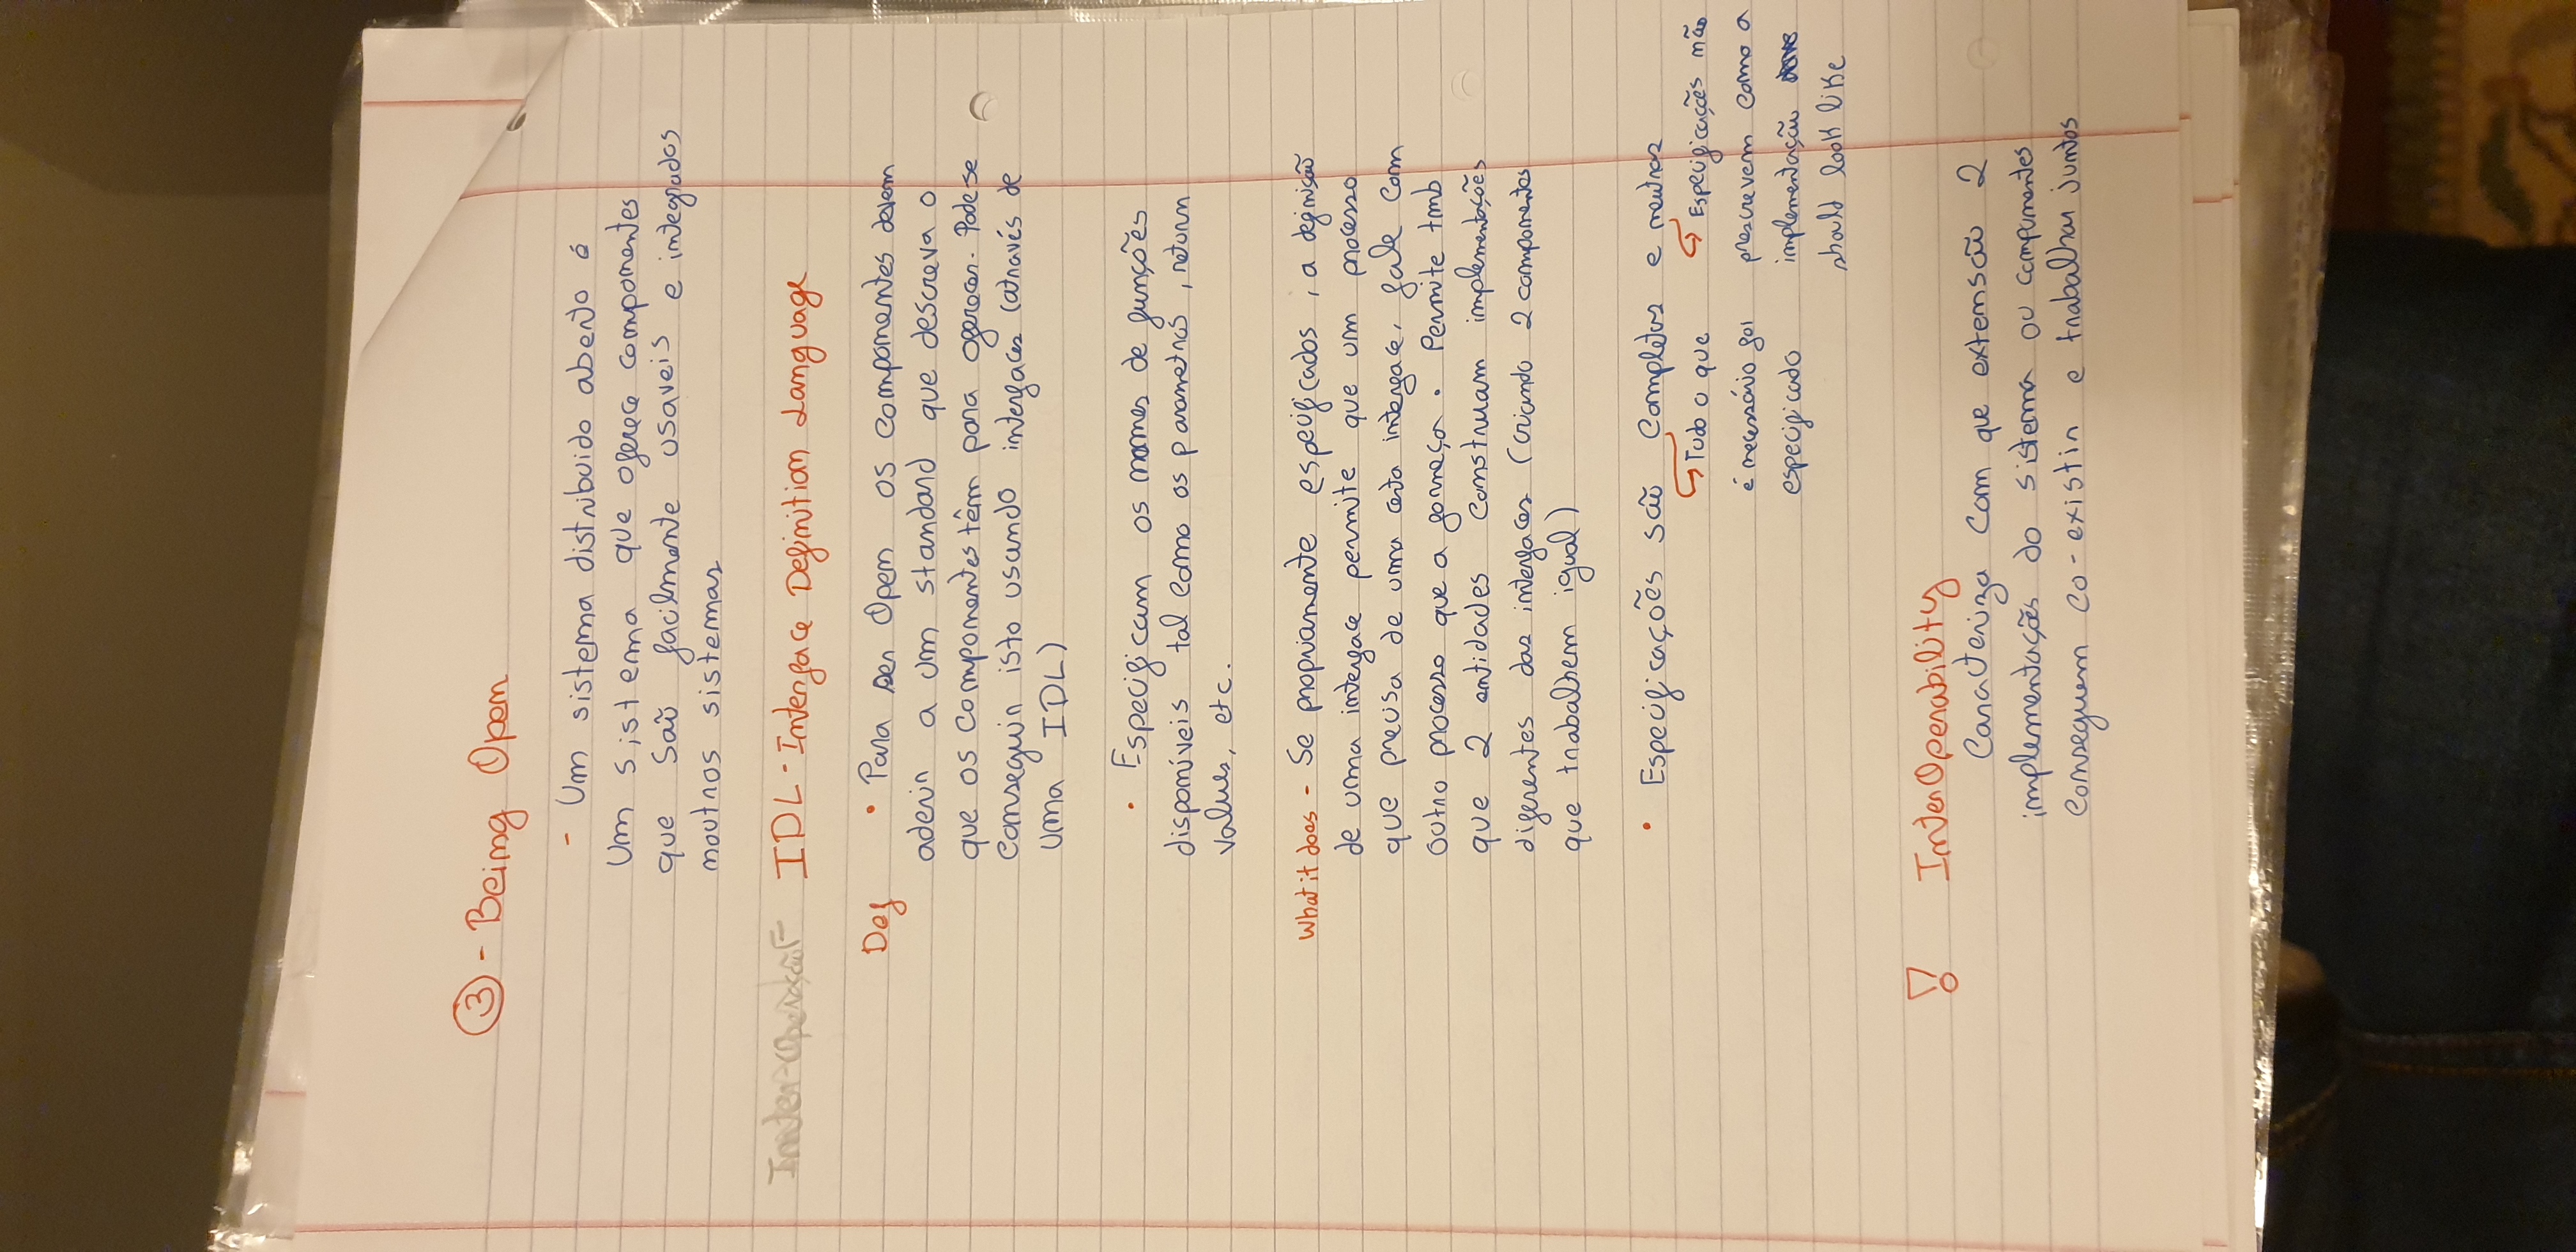 ③ - Being Open
- Um sistema distribuido aberto é
um sistema que oferece componentes
que saõ facilmente usaveis e integrados
noutros sistemas
IDL - Interface Definition Language
Def • Para ser Open os componentes devem
aderir a um standard que descreva o
que os componentes têm para oferecer. Pode-se
conseguir isto usando interfaces (através de
uma IDL)
• Especificam os nomes de funções
disponíveis tal como os parametros, return
values, etc.
What it does - Se propriamente especificados, a definição
de uma interface permite que um processo
que precisa de uma certa interface, fale com
outro processo que a forneça. Permite tmb
que 2 entidades construam implementações
diferentes das interfaces (criando 2 componentes
que trabalhem igual)
• Especificações são completas e neutras
↳ Tudo o que
é necessário foi
especificado
↳ Especificações não
prescrevem como a
implementação
should look like
! InterOperability
Caracteriza com que extensão 2
implementações do sistema ou componentes
conseguem co-existir e trabalhar juntos